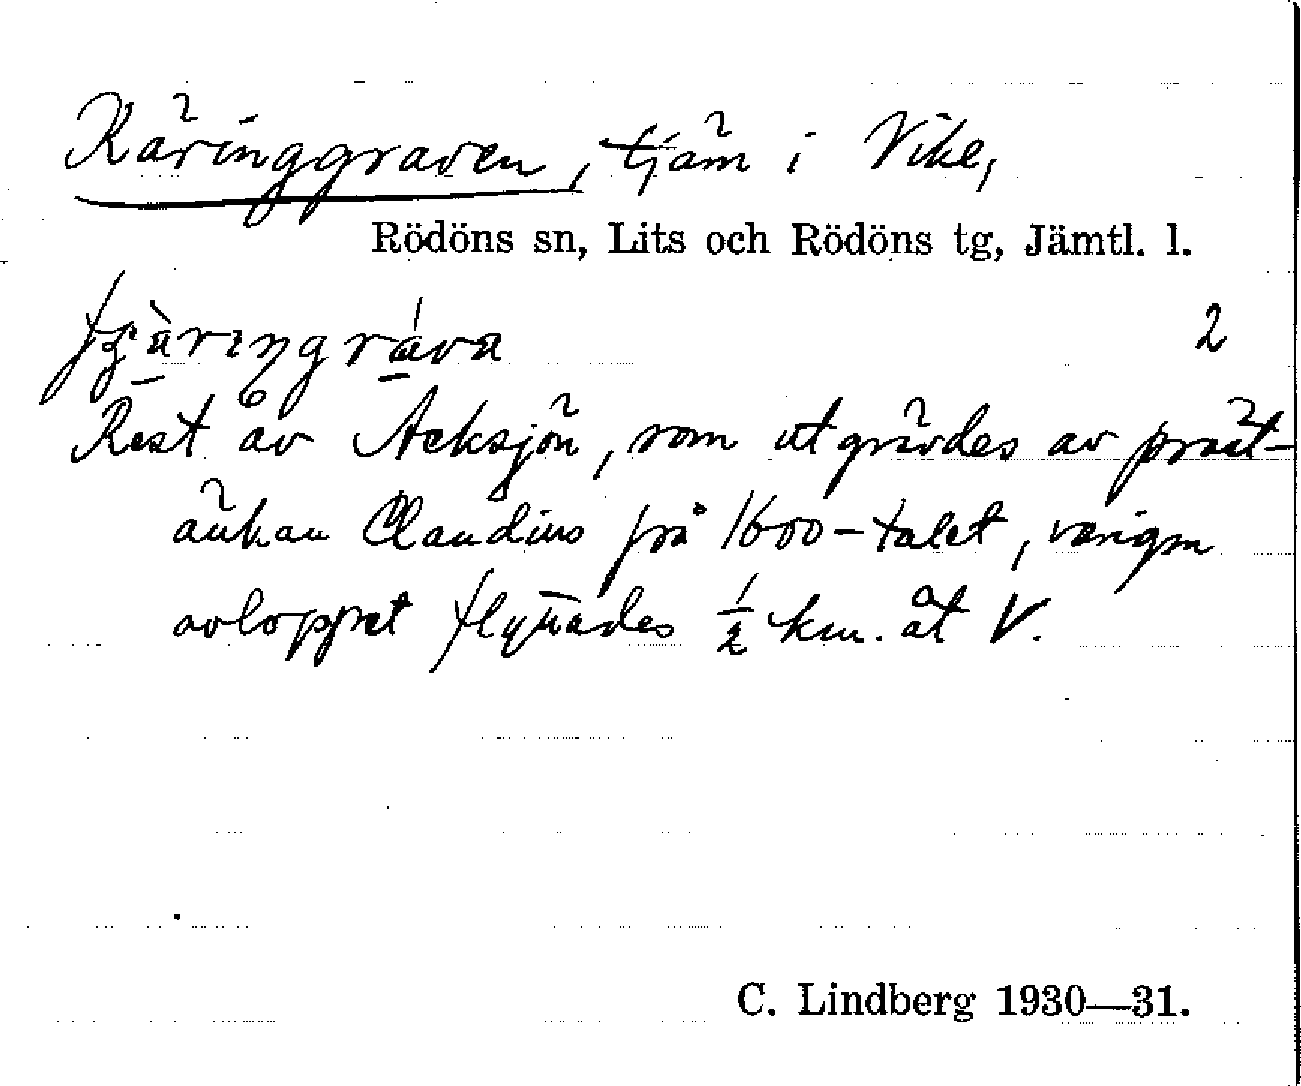 Käringgraven, tjäm i Vike,
Rödöns sn, Lits och Rödöns tg, Jämtl. l.
2
Rest av Acksjön, som utgrävdes av präst-
änkan Claudius på 1600-talet, varigm
avloppet flyttades ½ km. åt V.
C. Lindberg 1930—31.